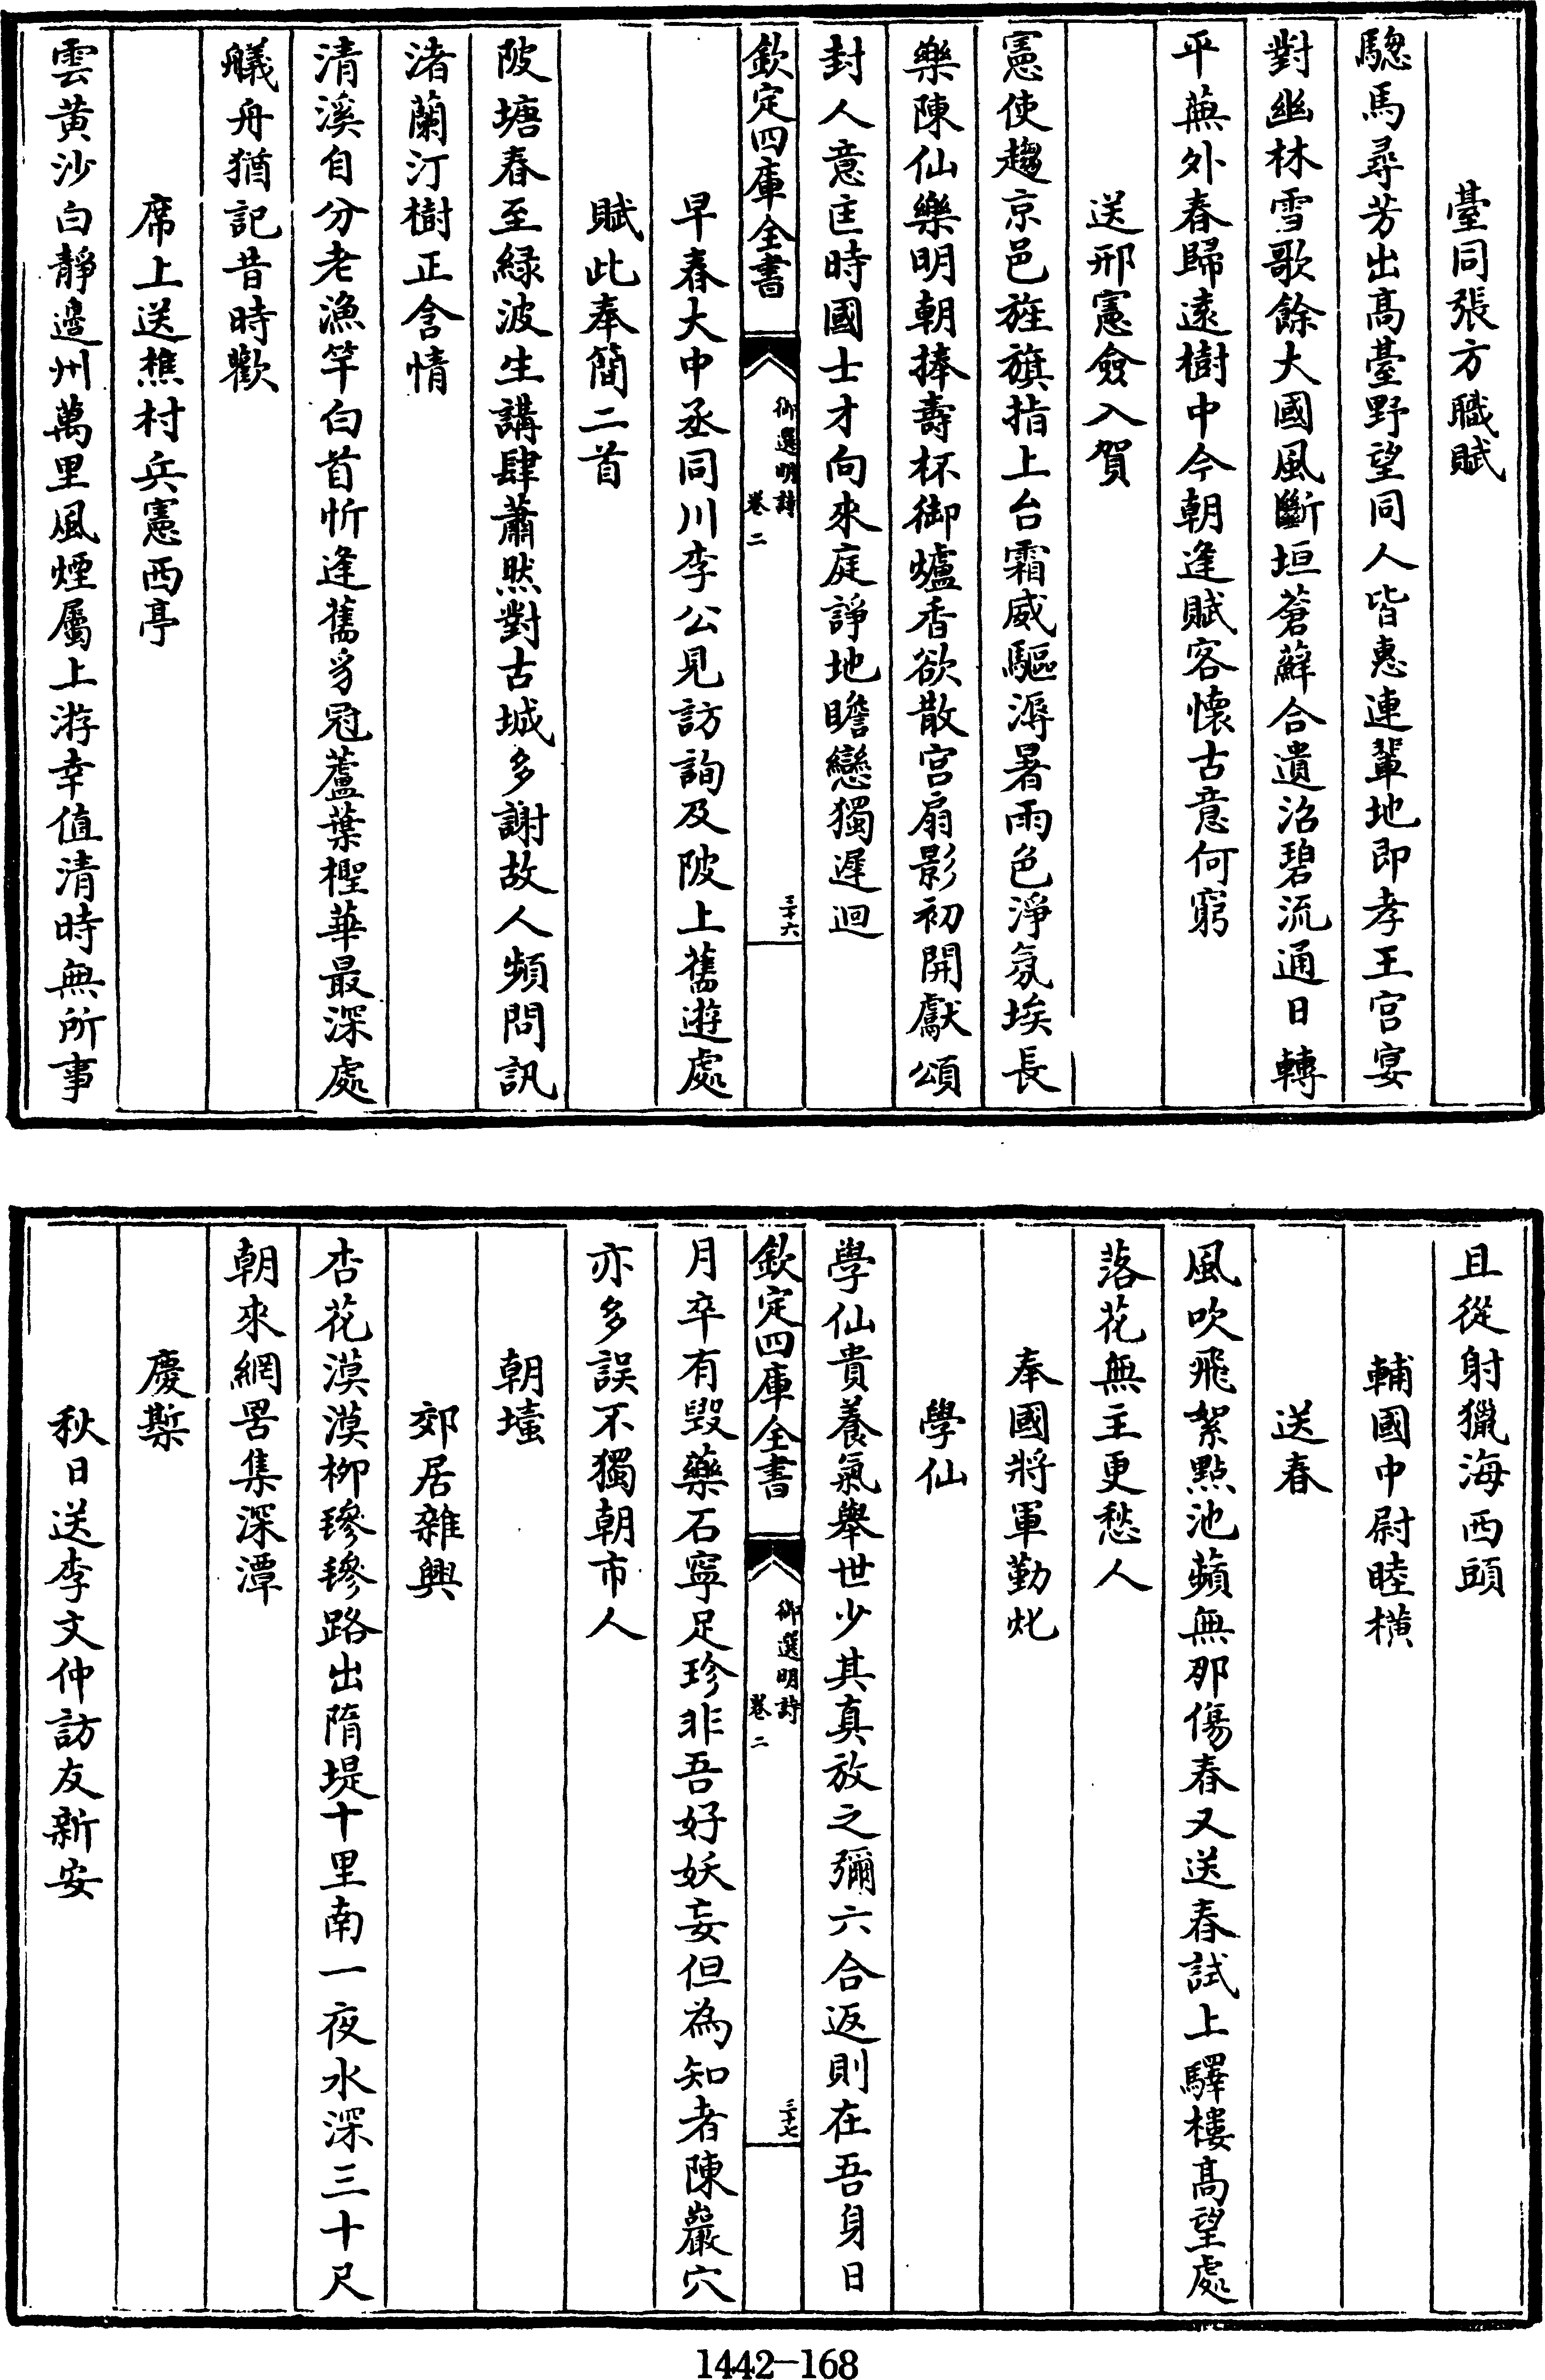 臺同張方職賦
驄馬尋芳出高臺野望同人皆惠連輩地即孝王宫宴
對幽林雪歌餘大國風斷垣蒼蘚合遺沼碧流通日轉
平蕪外春歸遠樹中今朝逢賦客懐古意何窮
送邢憲僉入賀
憲使趨京邑旌旗指上台霜威驅溽暑雨色淨氛埃長
樂陳仙樂明朝捧壽杯御爐香欲散宫扇影初開獻頌
封人意匡時國士才向來庭諍地瞻戀獨遲迴
欽定四庫全書
御選明詩
卷二
三十六
早春大中丞同川李公見訪詢及陂上舊遊處
賦此奉簡二首
陂塘春至緑波生講肆蕭然對古城多謝故人頻問訊
渚蘭汀樹正含情
清溪自分老漁竿白首忻逢舊豸冠蘆葉檉華最深處
艤舟猶記昔時歡
席上送樵村兵憲西亭
雲黄沙白靜邉州萬里風煙屬上游幸值清時無所事
且從射獵海西頭
輔國中尉睦㮳
送春
風吹飛絮點池蘋無那傷春又送春試上驛樓高望處
落花無主更愁人
奉國將軍勤𤆼
學仙
學仙貴養氣舉世少其真放之彌六合返則在吾身日
欽定四庫全書
御選明詩
卷二
三十七
月卒有毁藥石寧足珍非吾好妖妄但為知者陳巖穴
亦多誤不獨朝市人
朝㙷
郊居雜興
杏花漠漠柳毿毿路出隋堤十里南一夜水深三十尺
朝來網罟集深潭
慶㮶
秋日送李文仲訪友新安
1442-168